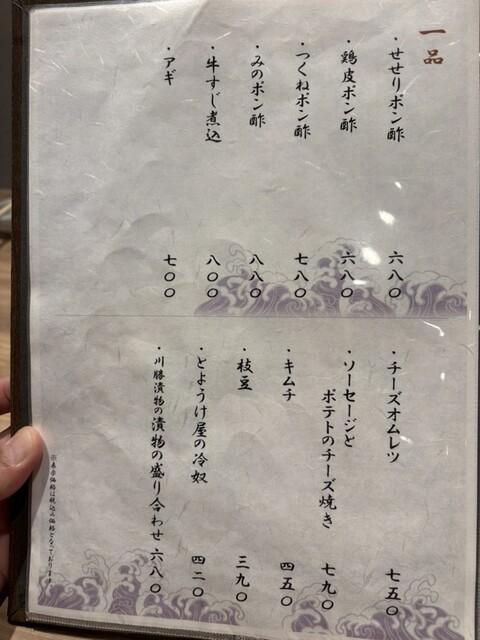 一品
・せせりポン酢 六八〇
・鶏皮ポン酢 六八〇
・つくねポン酢 七八〇
・みのポン酢 八八〇
・牛すじ煮込 八〇〇
・アギ 七〇〇
・チーズオムレツ 七五〇
・ソーセージと
ポテトのチーズ焼き 七九〇
・キムチ 四五〇
・枝豆 三九〇
・とようけ屋の冷奴 四二〇
・川勝漬物の漬物の盛り合わせ 六八〇
※表示価格は税込み価格となっております。